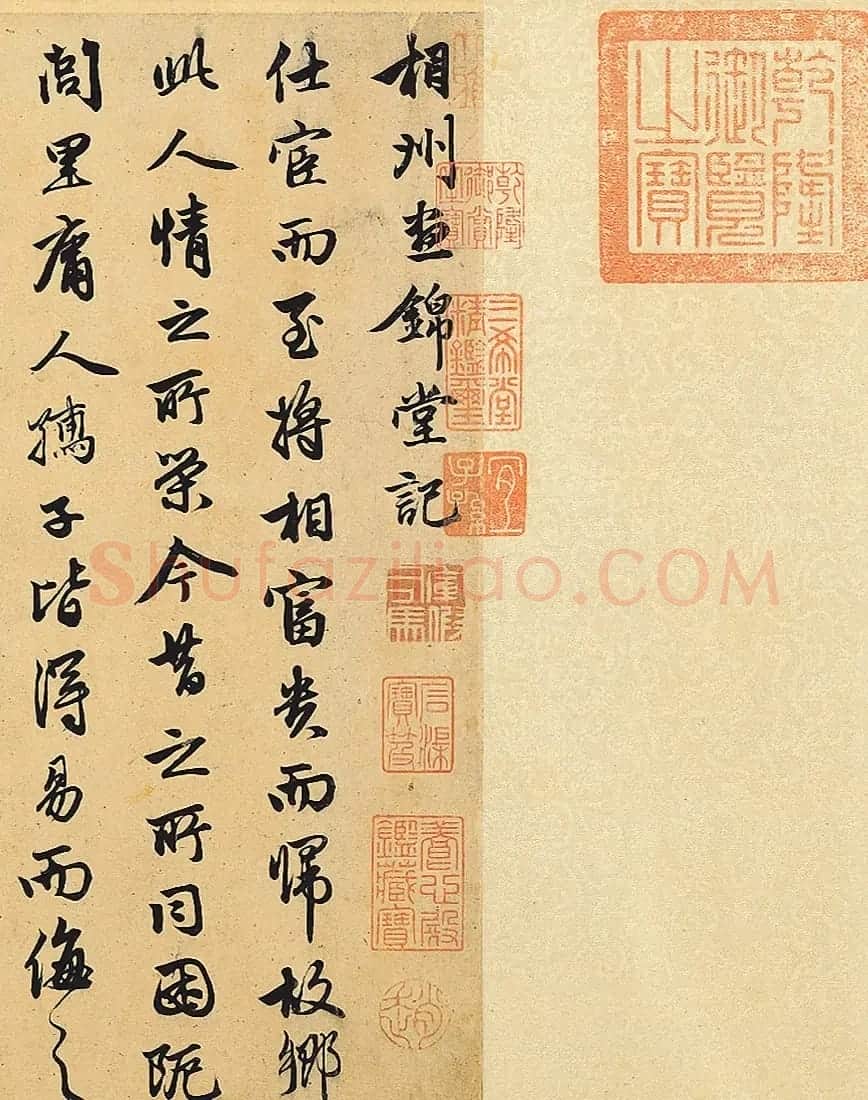 乾隆御覽之寶
乾隆御賞之寶
三希堂精鑑璽
宜子孫
相州晝錦堂記
石渠寶笈
養心殿鑑藏寶
仕宦而至將相富貴而歸故鄉
此人情之所榮今昔之所同困阨
閭里庸人孺子皆得易而侮之
Shufaziliao.COM